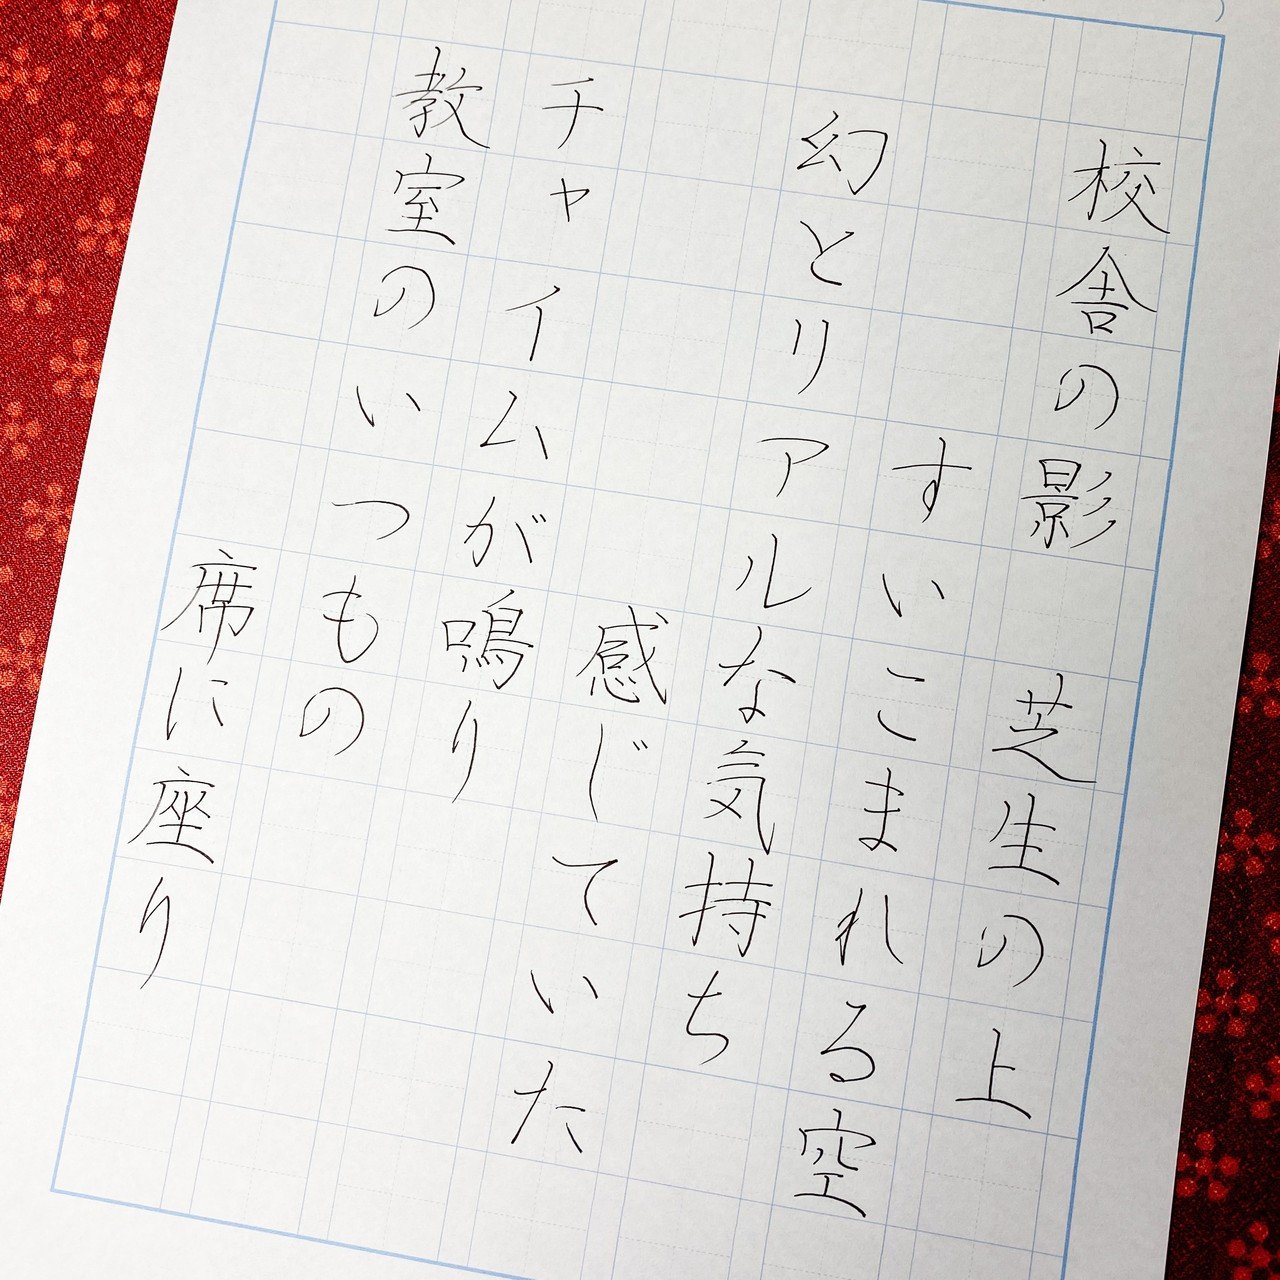 校舎の影　芝生の上
すいこまれる空
幻とリアルな気持ち
感じていた
チャイムが鳴り
教室のいつもの
席に座り